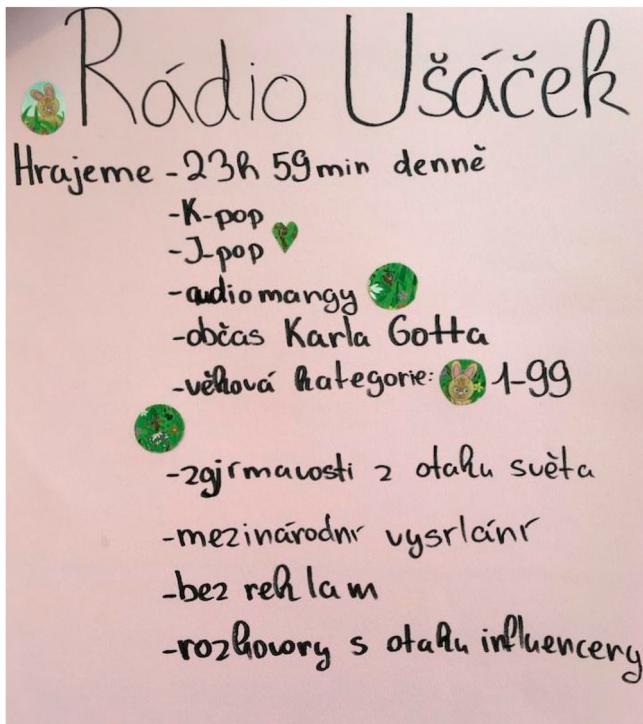 Rádio Ušáček
Hrajeme - 23h 59min denně
-K-pop
-J-pop
-audiomangy
-občas Karla Gotta
-věková kategorie: 1-99
-zajímavosti z otaku světa
-mezinárodní vysílání
-bez reklam
-rozhovory s otaku influencery